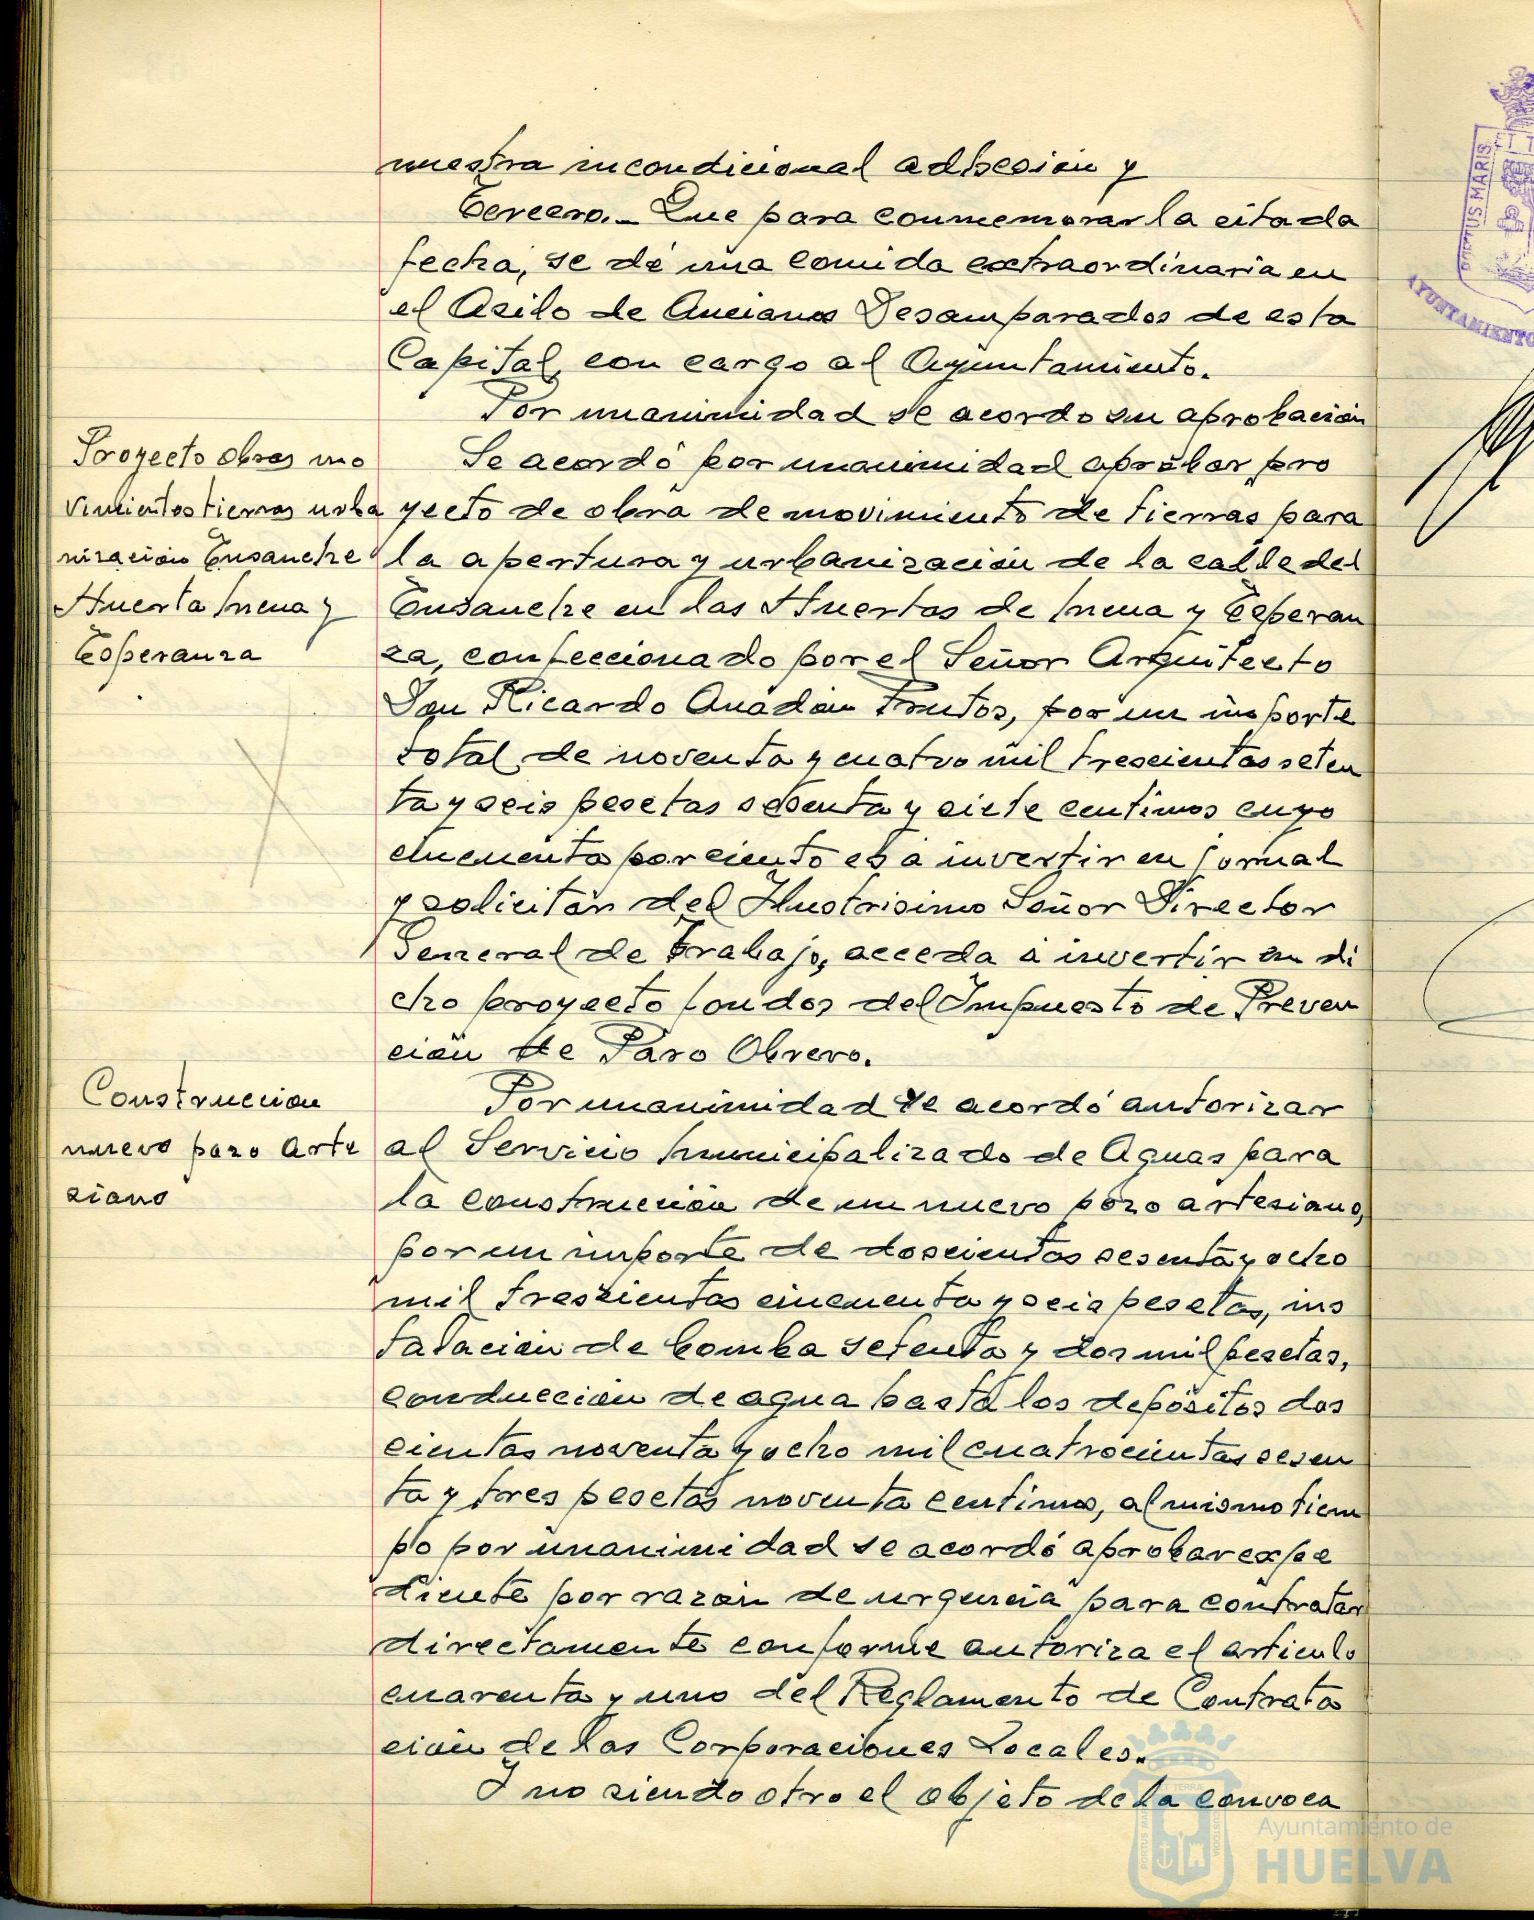 nuestra incondicional adhesión y
Tercero.- Que para conmemorar la citada
fecha, se dé una comida extraordinaria en
el Asilo de Ancianos Desamparados de esta
Capital, con cargo al Ayuntamiento.
Por unanimidad se acordo su aprobación
Proyecto obras mo
vimientos tierras urba
nización Ensanche
Huerta Mena y
Esperanza
Se acordó por unanimidad aprobar pro
yecto de obra de movimiento de tierras para
la apertura y urbanización de la calle del
Ensanche en las Huertas de Mena y Esperan
za, confeccionado por el Señor Arquitecto
Don Ricardo Anadón Frutos, por un importe
total de noventa y cuatro mil trescientas seten
ta y seis pesetas sesenta y siete centimos cuyo
cincuenta por ciento es a invertir en jornal
y solicitar del Ilustrisimo Señor Director
General de Trabajo, acceda a invertir en di
cho proyecto fondos del Impuesto de Preven
ción de Paro Obrero.
Construccion
nuevo pozo arte
siano
Por unanimidad se acordó autorizar
al Servicio Municipalizado de Aguas para
la construcción de un nuevo pozo artesiano,
por un importe de doscientas sesenta y ocho
mil trescientas cincuenta y seis pesetas, ins
talación de bomba setenta y dos mil pesetas,
conducción de agua hasta los depósitos dos
cientas noventa y ocho mil cuatrocientas sesen
ta y tres pesetas noventa centimos, al mismo tiem
po por unanimidad se acordó aprobar expe
diente por razón de urgencia para contratar
directamente conforme autoriza el articulo
cuarenta y uno del Reglamento de Contrata
ción de las Corporaciones Locales.
Y no siendo otro el objeto de la convoca
PORTUS MARIS
AYUNTAMIENTO
Ayuntamiento de
HUELVA